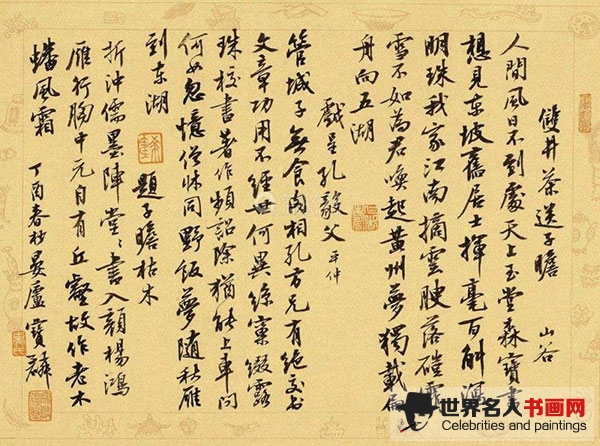 雙井茶送子瞻 山谷
人間風日不到處天上玉堂森寶書
想見东坡舊居士揮毫百斛瀉
明珠我家江南摘雲腴落磑霏
雪不如為君喚起黃州夢獨載扁
舟向五湖
戲呈孔毅父 平仲
管城子無食肉相孔方兄有絕交書
文章功用不經世何異絲窠綴露
珠校書著作頻詔除猶能上車問
何如忽憶僧床同野飯夢隨秋雁
到东湖 題子瞻枯木
折沖儒墨陣堂〻書入顏楊鴻
雁行胸中元自有丘壑故作老木
蟠風霜 丁酉春杪晏廬寶麟
世界名人书画网
Celebrities and paintings